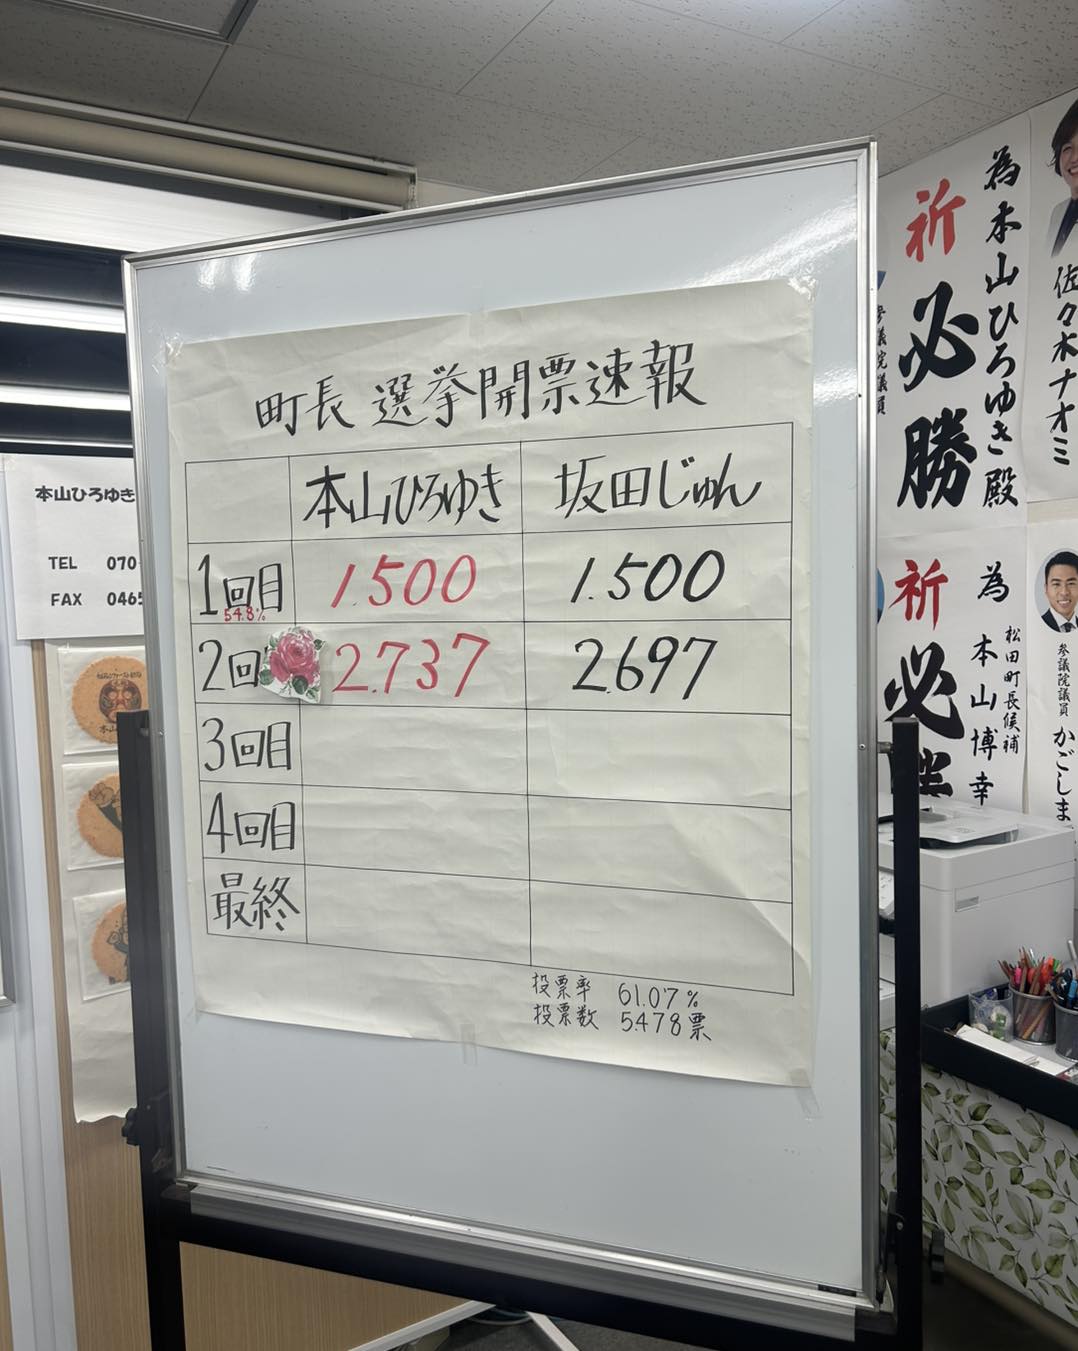 町長 選挙開票速報
本山ひろゆき 坂田じゅん
1回目 1.500 1.500
54.8%
2回 2.737 2.697
3回目
4回目
最終
投票率 61.07%
投票数 5478票
本山ひろゆき
TEL 070-
FAX 0465
為本山ひろゆき殿
祈必勝
参議院議員
佐々木ナオミ
為
松田町長候補
本山博幸
祈必
参議院議員
かごしま